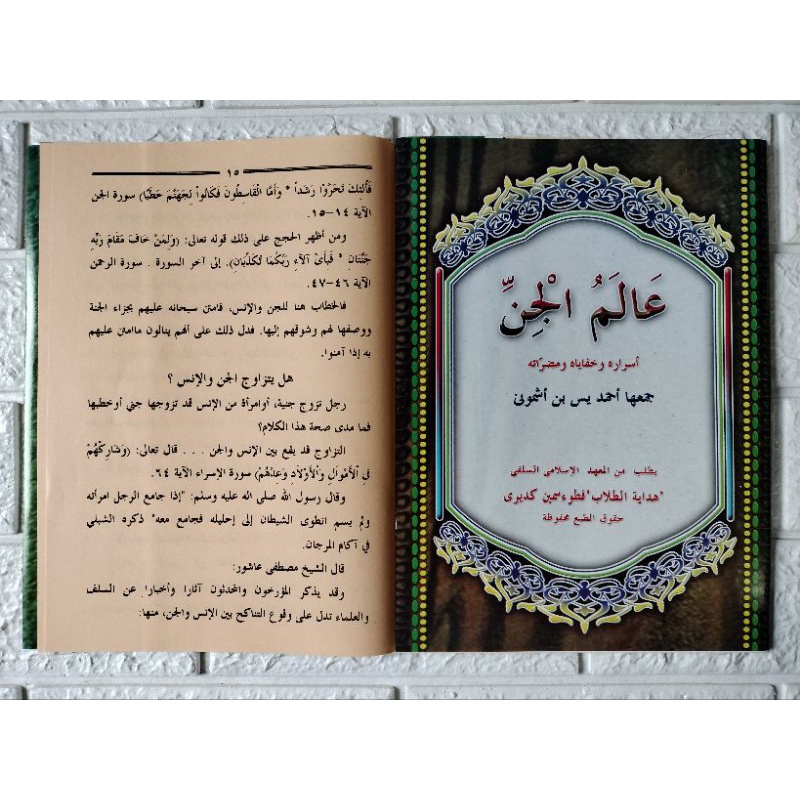 ١٥
فَأُلئِكَ تَحَرَّوْا رَشَداً * وَأَمَّا الْقَاسِطُونَ فَكَانُوا لِجَهَنَّمَ حَطَبًا) سورة الجن
الآية ١٤-١٥.
ومن أظهر الحجج على ذلك قوله تعالى: (وَلِمَنْ خَافَ مَقَامَ رَبِّهِ
جَنَّتَانِ * فَبِأَىِّ آلاَءِ رَبِّكُمَا تُكَذِّبَانِ). إلى آخر السورة . سورة الرحمن
الآية ٤٦-٤٧.
فالخطاب هنا للجن والإنس، فامتن سبحانه عليهم بجزاء الجنة
ووصفها لهم وشوقهم إليها. فدل ذلك على أنهم ينالون ماامتن عليهم
به إذا آمنوا.
هل يتزاوج الجن والإنس ؟
رجل تزوج جنية، أوامرأة من الإنس قد تزوجها جني أوخطبها
فما مدى صحة هذا الكلام؟
التزاوج قد يقع بين الإنس والجن . . . قال تعالى: (وَشَارِكْهُمْ
فِي الْأَمْوَالِ وَالْأَوْلَادِ وَعِدْهُمْ) سورة الإسراء الآية ٦٤.
وقال رسول الله صلى الله عليه وسلم: "إذا جامع الرجل امرأته
ولم يسم انطوى الشيطان إلى إحليله فجامع معه" ذكره الشبلي
في آكام المرجان.
قال الشيخ مصطفى عاشور:
وقد يذكر المؤرخون والمحدثون آثارا وأخبارا عن السلف
والعلماء تدل على وقوع التناكح بين الإنس والجن، منها:
عَالَمُ الْجِنِّ
أسراره وخفاياه ومضرّاته
جمعها أحمد يس بن أشموني
يطلب من المعهد الإسلامى السلفى
"هداية الطلاب" فطوء سمبن كديرى
حقوق الطبع محفوظة